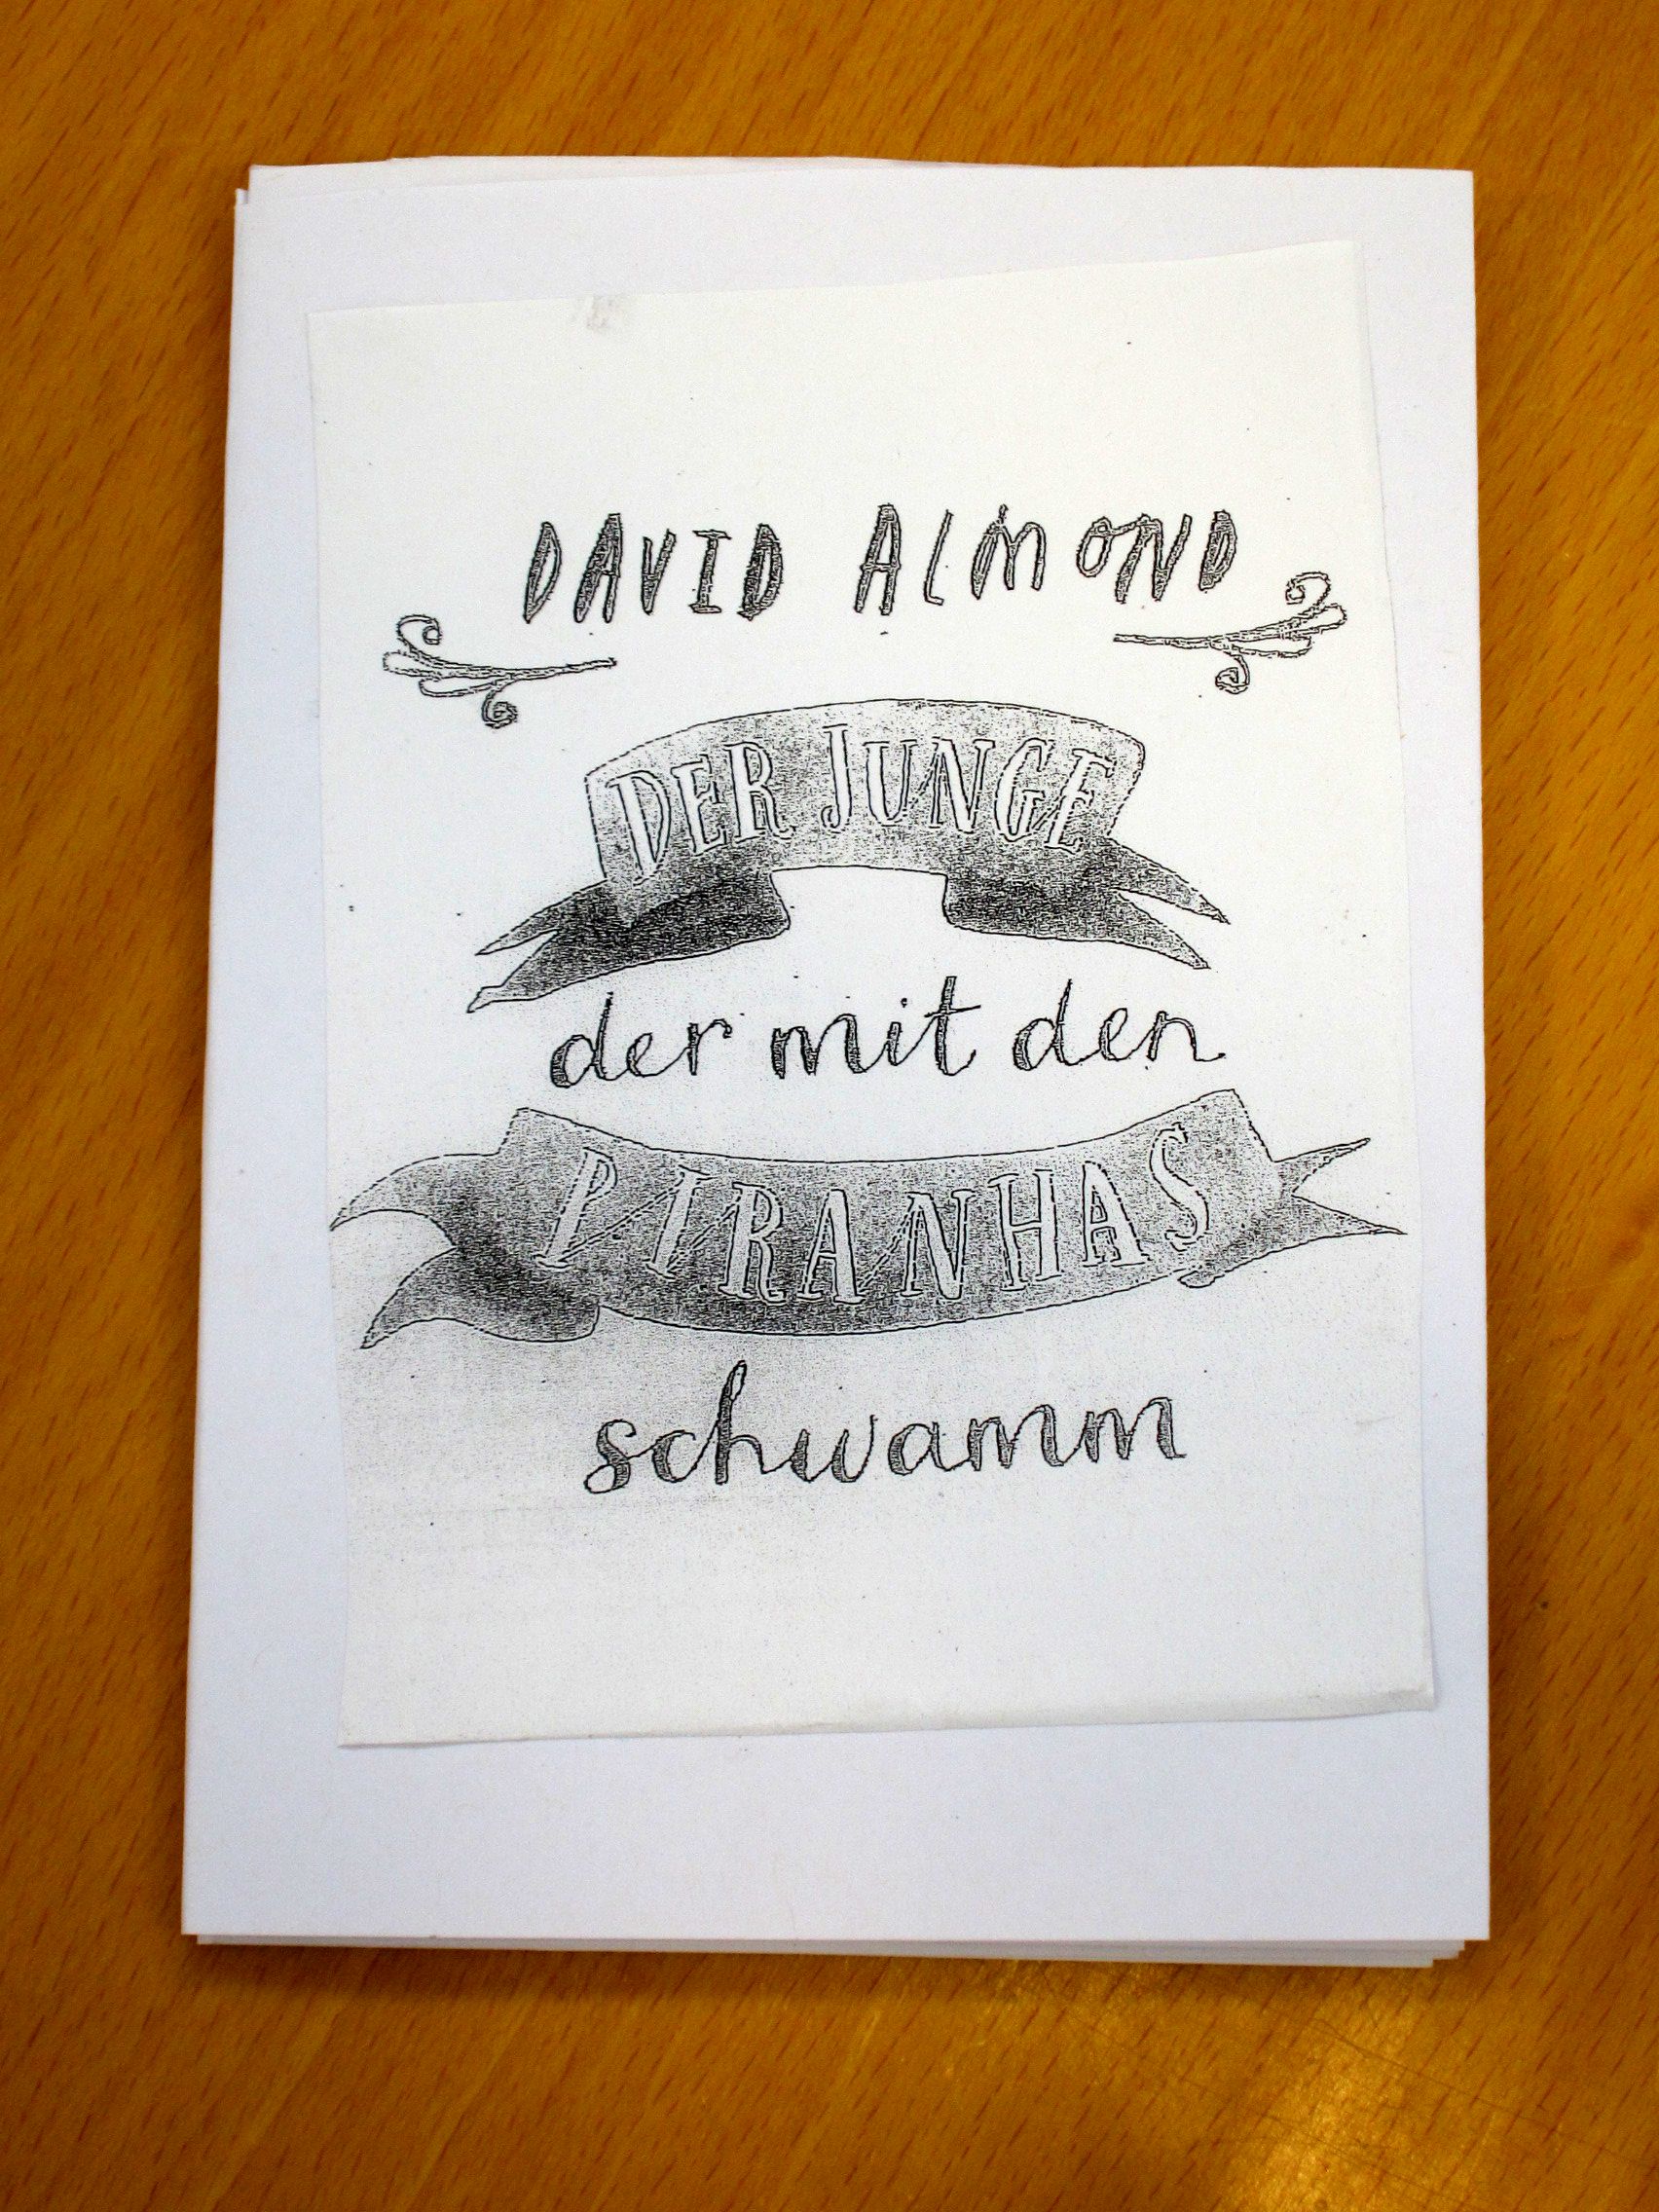 DAVID ALMOND
DER JUNGE
der mit den
PIRANHAS
schwamm